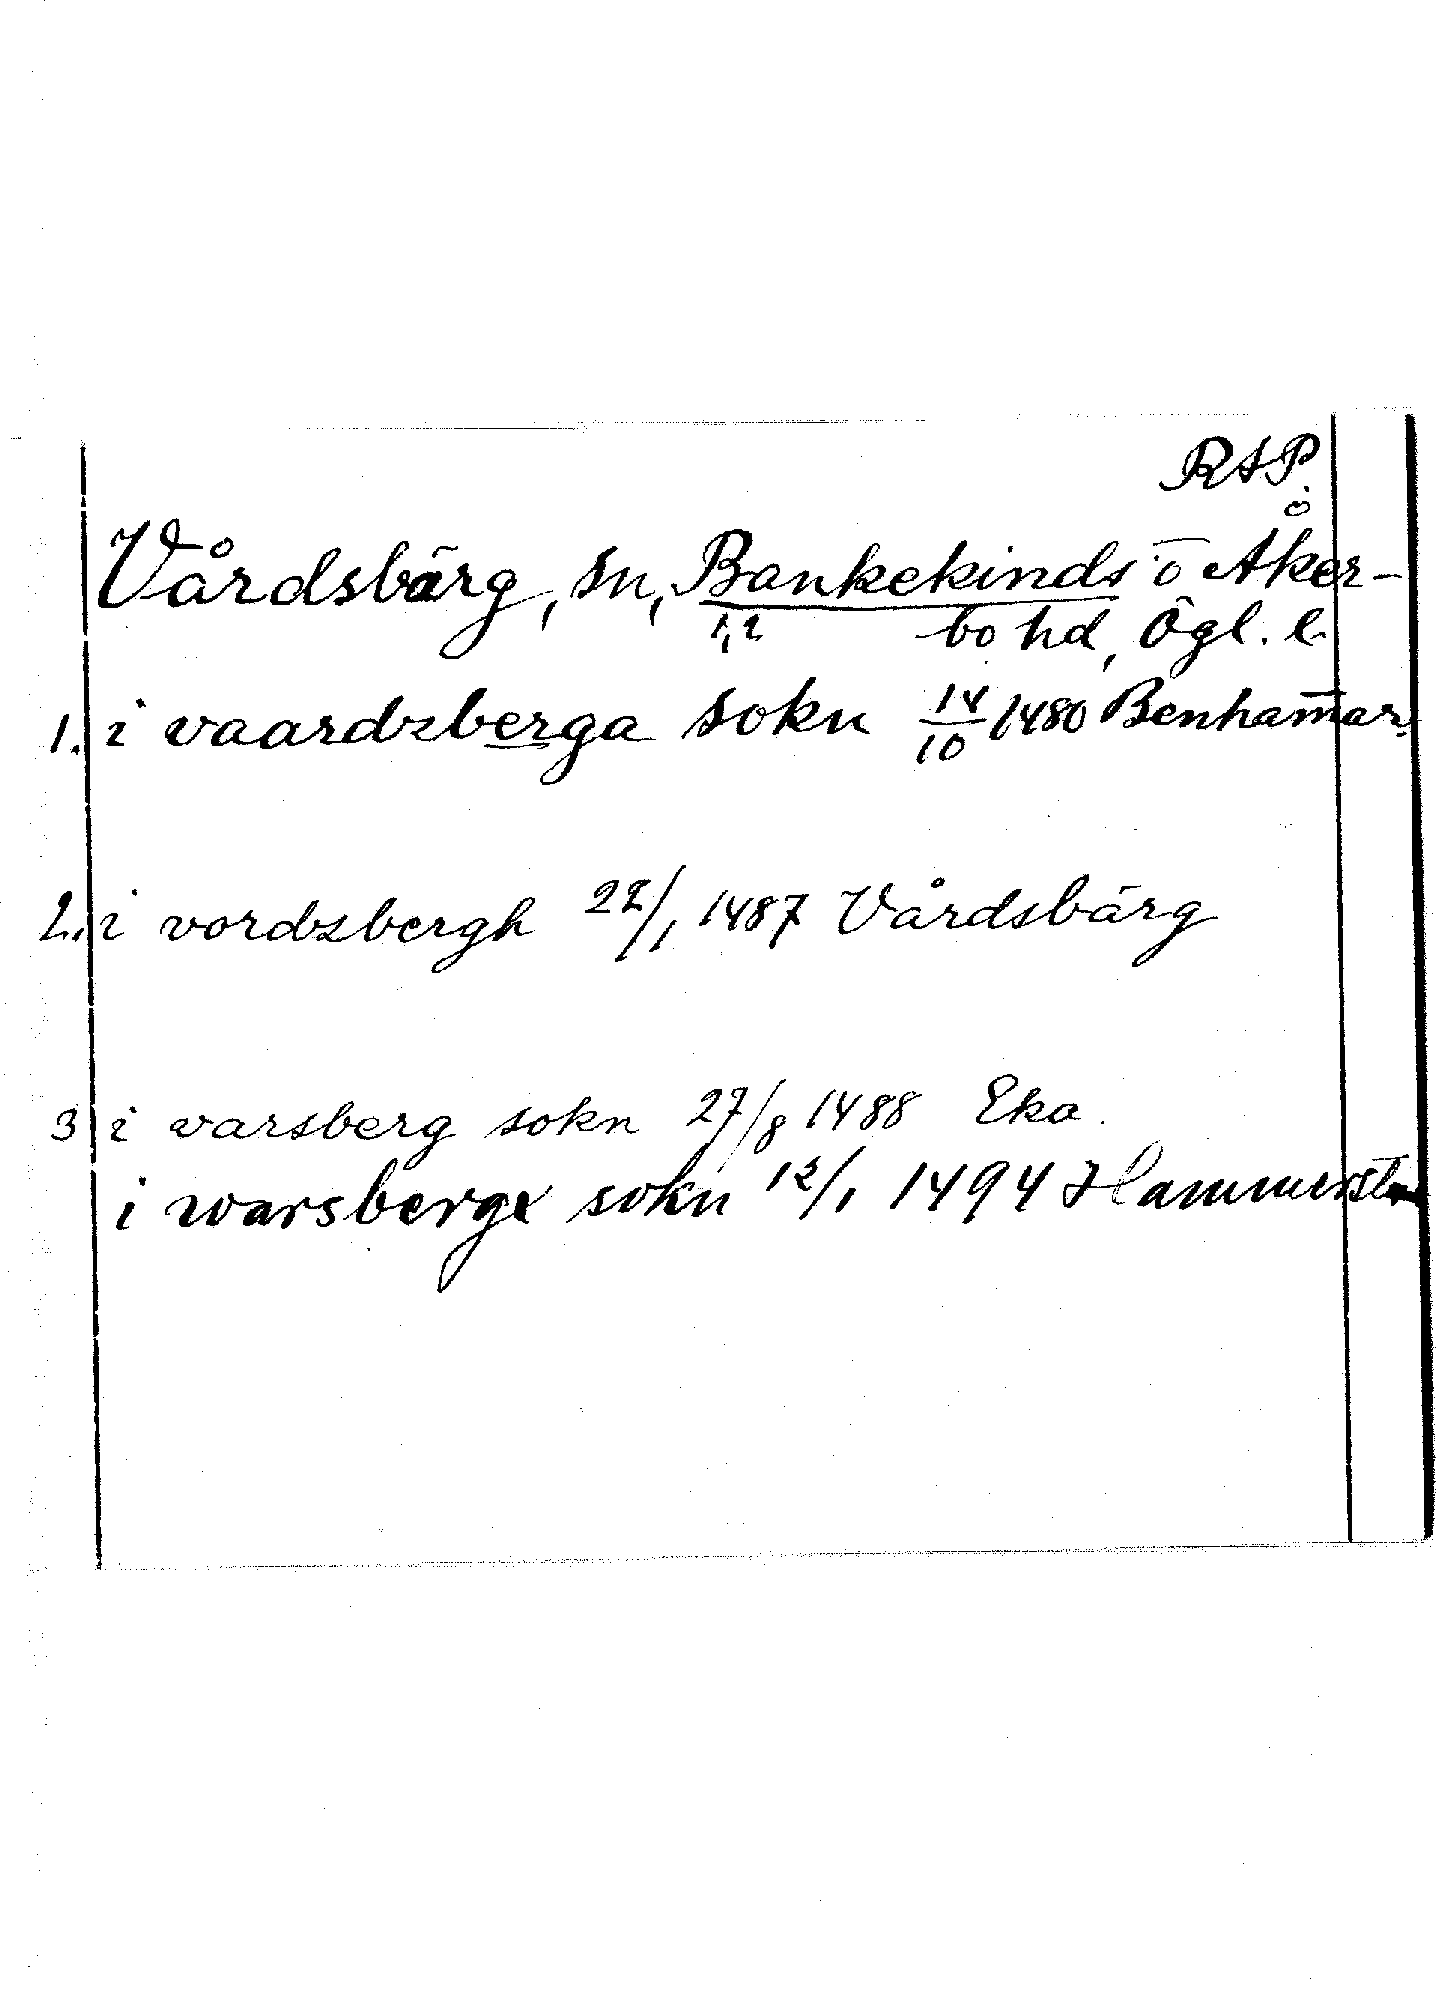 RAP
Vårdsbärg, sn, Bankekinds o Åker-
1,2 bo hd, Ögl. l.
1. i vaardzberga sokn 14/10 1480 Benham̄ar
2. i vordzbergh 22/1 1487 Vårdsbärg
3 i varsberg sokn 27/8 1488 Eka
i warsberge sokn 12/1 1494